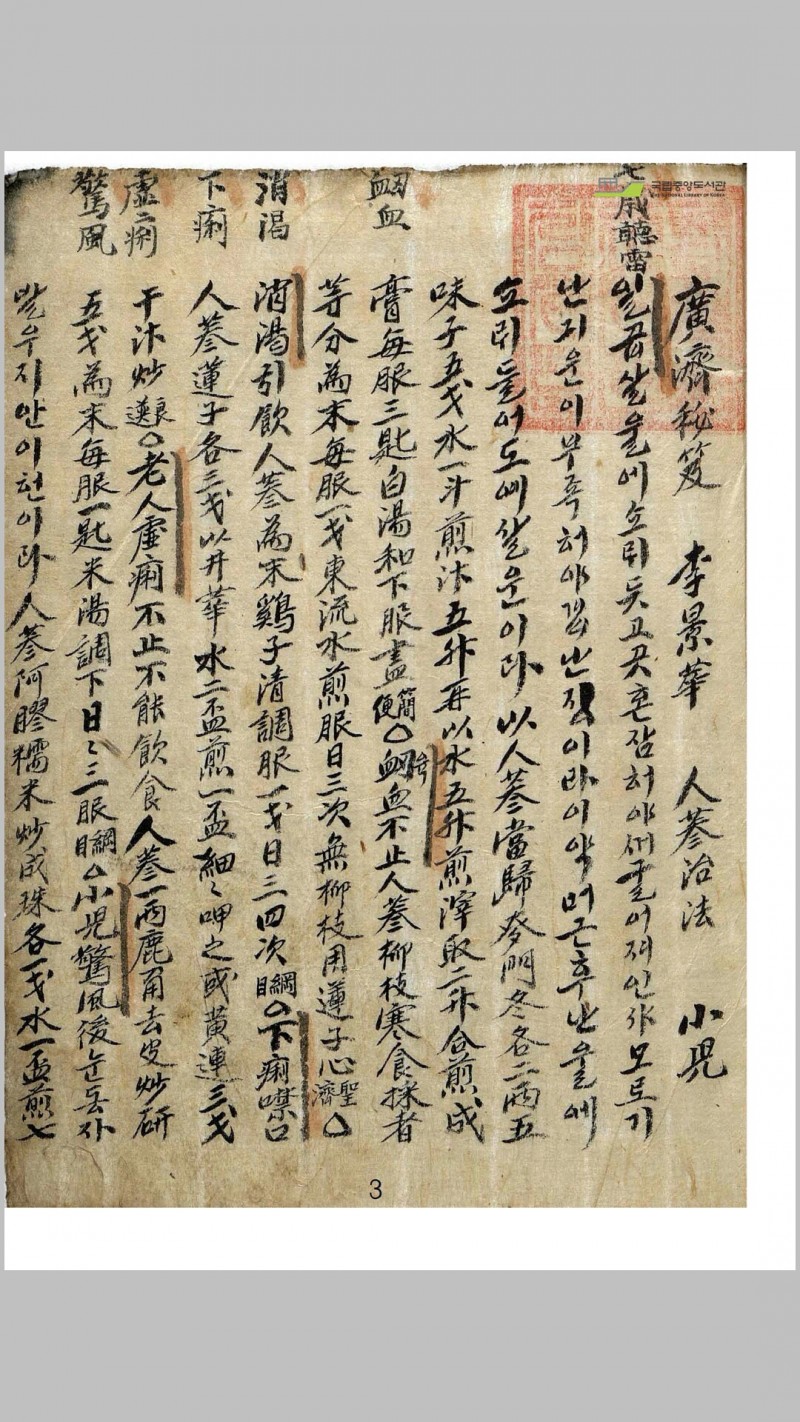 國立中央圖書館
廣濟秘笈 李景華 人蔘治法 小兒
七歲聽雷
일곱살울에소뢰듯고곳혼잠허야 인사모로기
난지운이부족허야 난 이라이약머근후난울에
소뢰들어도예살운이라以人蔘當歸麥門冬各二兩五
味子五戔水一斗煎汁五升再以水五升煎滓取二升合煎成
衄血
膏每服三匙白湯和下服盡簡便○衄血不止人蔘柳枝寒食採者
等分為末每服一戔東流水煎服日三次無柳枝用蓮子心聖濟○
消渴
消渴引飲人蔘為末鷄子清調服一戔日三四次綱目○下痢噤口
下痢
人蔘蓮子各三戔以井華水二盃煎一盃細〻呷之或黃連三戔
虛痢
干汁炒 ○老人虛痢不止不能飲食人蔘一兩鹿角去皮炒研
驚風
五戔為末每服一匙米湯調下日〻三服綱目○小兒驚風後눈동자
발우지안이헌이라人蔘阿膠糯米炒成珠各一戔水一盃煎七
3